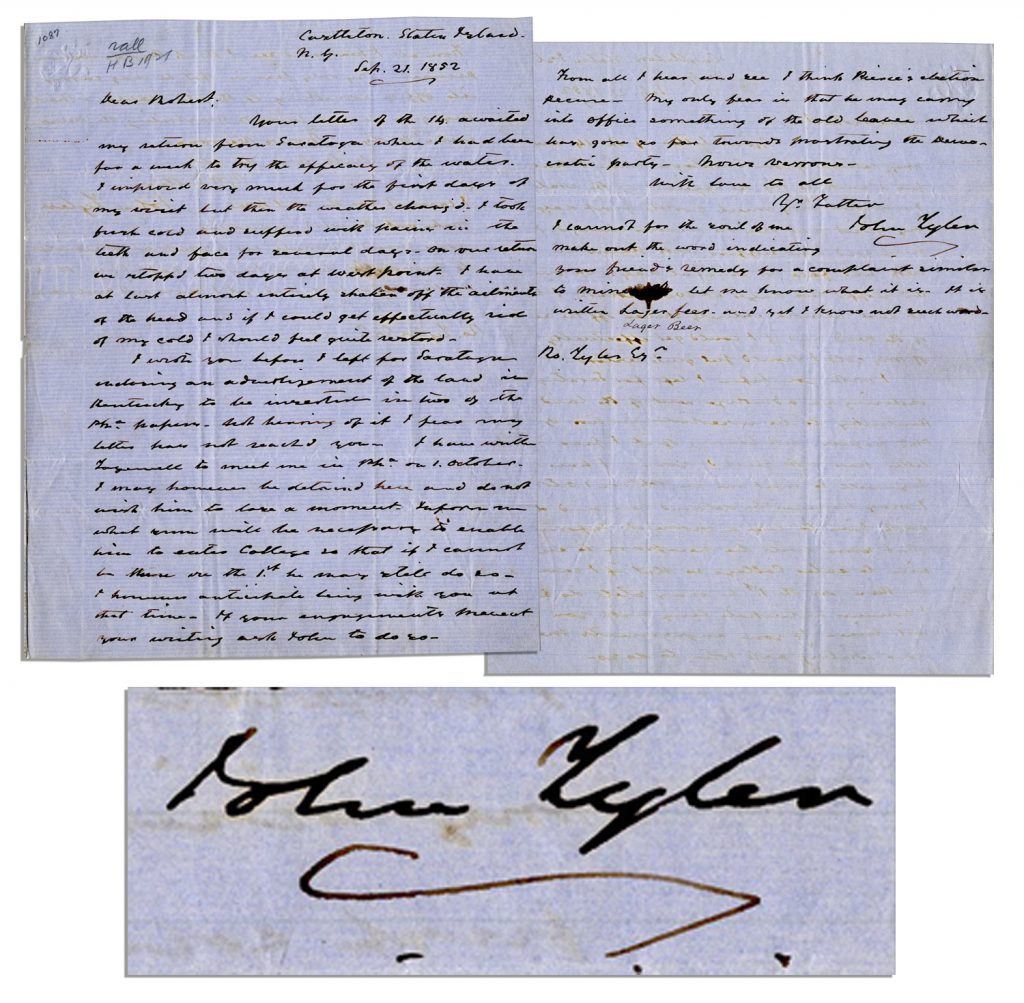 1087
Castleton. Staten Island.
N. Y.
Sep. 21. 1852
Dear Robert,
Your letter of the 14. awaited
my return from Saratoga where I had been
for a week to try the efficacy of the waters.
I improvd very much for the first days of
my visit but then the weather changd. I took
fresh cold and suffered with pain in the
teeth and face for several days. On our return
we stoppd two days at West Point. I have
at last almost entirely shaken off the ailments
of the head and if I could get effectually rid
of my cold I should feel quite restord-
I wrote you before I left for Saratoga
inclosing an advertizement of the land in
Kentucky to be inserted in two of the
Pha. papers- Not hearing of it I fear my
letter has not reachd you- I have written
Tazewell to meet me in Pha. on 1. October.
I may however be detained here and do not
wish him to lose a moment. Inform me
what sum will be necessary to enable
him to enter College so that if I cannot
be there on the 1st. he may still do so-
I however anticipate being with you at
that time- If your engagements prevent
your writing ask John to do so-
From all I hear and see I think Pierce's election
secure- My only fear is that he may carry
into office something of the old leaven which
has gone so far towards prostrating the Demo-
cratic party- Nous verrons-
With love to all
Yr. Father
John Tyler
I cannot for the soul of me
make out the word indicating
your friend's remedy for a complaint similar
to mine let me know what it is. It is
written Lager feer- and yet I know not such word-
Lager Beer
Ro. Tyler Esqr.
John Tyler